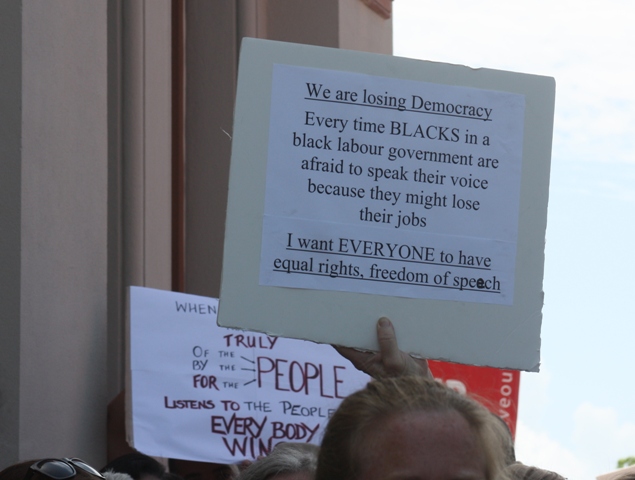 We are losing Democracy
Every time BLACKS in a
black labour government are
afraid to speak their voice
because they might lose
their jobs
I want EVERYONE to have
equal rights, freedom of speech
WHEN
TRULY
OF THE
BY THE
FOR THE
PEOPLE
LISTENS TO THE PEOPLE
EVERY BODY
WIN
veou